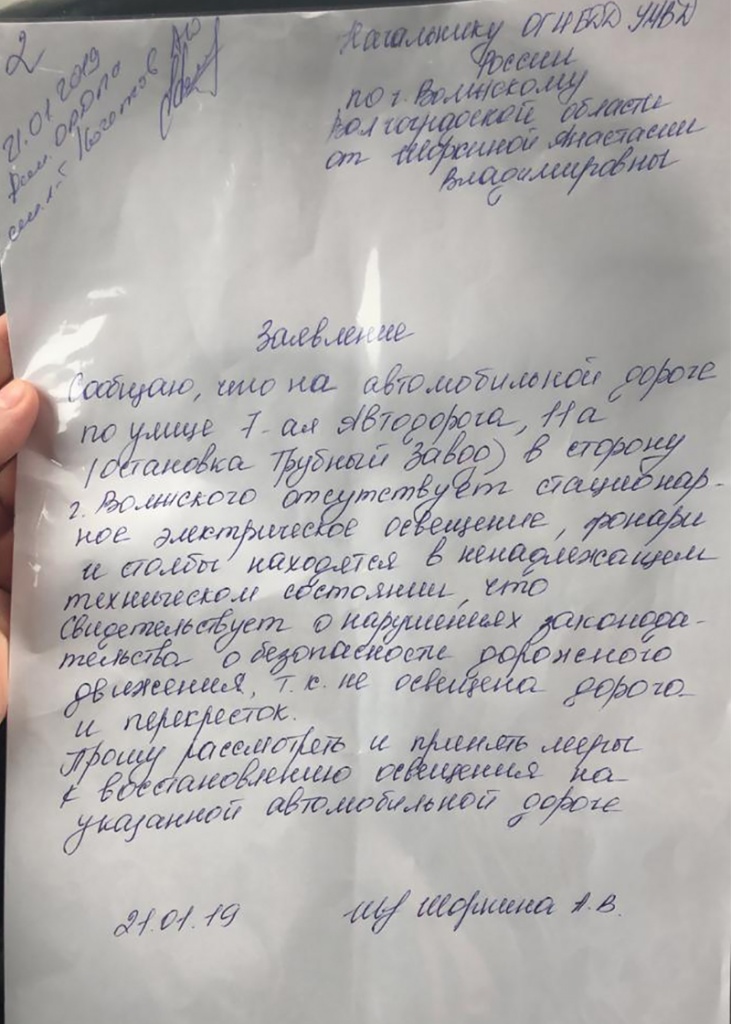 2
21.01.2019
Начальнику ОГИБДД УМВД
России
по г. Волжскому
Волгоградской области
от Шоркиной Анастасии
Владимировны
Заявление
Сообщаю, что на автомобильной дороге
по улице 7-ая Автодорога, 11а
(остановка Трубный Завод) в сторону
г. Волжского отсутствует стационар-
ное электрическое освещение, фонари
и столбы находятся в ненадлежащем
техническом состоянии, что
свидетельствует о нарушениях законода-
тельства о безопасности дорожного
движения, т.к. не освещена дорога
и перекресток.
Прошу рассмотреть и принять меры
к восстановлению освещения на
указанной автомобильной дороге
21.01.19 Шоркина А.В.